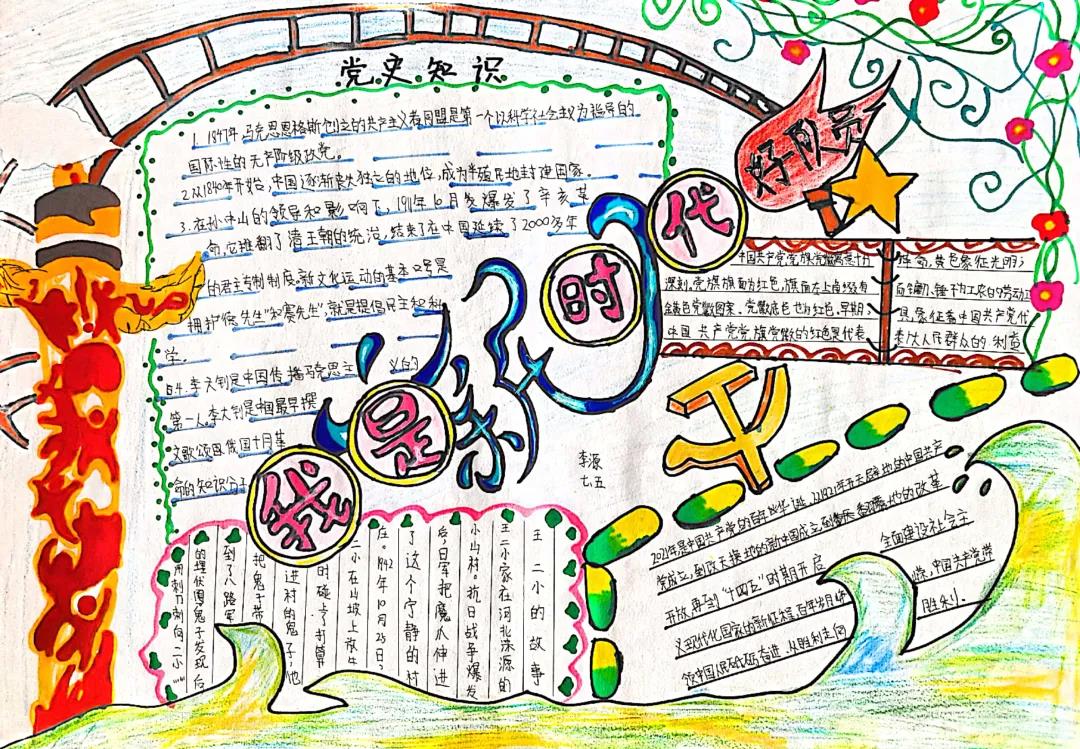 党史知识
1. 1847年马克思恩格斯创立的共产主义者同盟是第一个以科学社会主义为指导的
国际性的无产阶级政党。
2.从1840年开始,中国逐渐丧失独立的地位,成为半殖民地封建国家。
3.在孙中山的领导和影响下,1911年10月爆发了辛亥革
命,它推翻了清王朝的统治,结束了在中国延续了2000多年
的君主专制制度.新文化运动的基本口号是
拥护"德先生"和"赛先生",就是提倡民主和科
学。
4.李大钊是中国传播马克思主义的
第一人.李大钊是中国最早撰
文歌颂俄国十月革
命的知识分子
我是新时代
好队员
中国共产党党旗党徽
深刻,党旗旗面为红色,旗面左上角缀有
金黄色党徽图案。党徽底色也为红色,早期
中国共产党党旗党徽的红色是代表
革命,黄色象征光明;
而镰刀、锤子为工农的劳动工
具,象征着中国共产党代
表人民群众的利益
李源
七、五
2021年是中国共产党的百年华诞,从1921年开天辟地的中国共产
党成立,到改天换地的新中国成立,到翻天覆地的改革
开放,再到"十四五"时期开启全面建设社会主
义现代化国家的新征程,百年岁月峥嵘,中国共产党带
领中国人民砥砺奋进,从胜利走向胜利.
王二小的故事
王二小家在河北涞源的
小山村。抗日战争爆发
后,日军把魔爪伸进
了这个宁静的村
庄。1942年10月25日,
二小在山坡上放牛
时碰与了打算
进村的鬼子,他
把鬼子带
到了八路军
的埋伏圈,鬼子发现后
用刺刀刺向二小